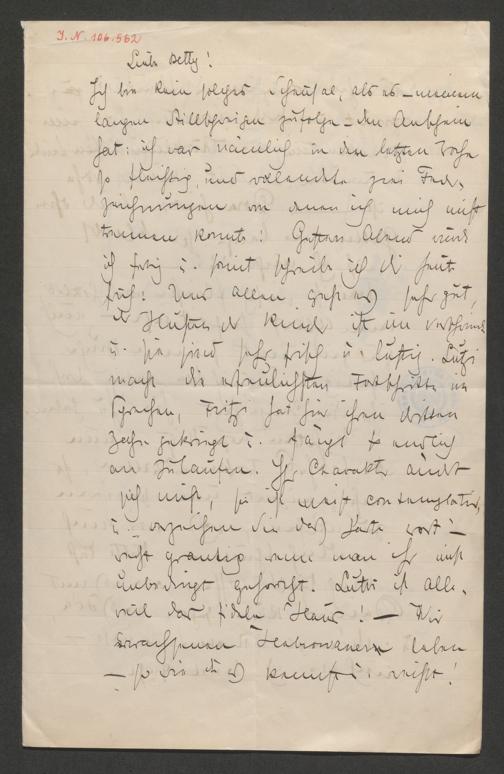 J. N. 106.582
Liebe Betty!
Ich bin kein solches Scheusal, als es – meinem
langen Stillschweigen zufolge – den Anschein
hat: ich war nämlich in der letzten Woche
so fleissig, und vollendete zwei Feder-
zeichnungen von denen ich mich nicht
trennen konnte! Gestern Abend wurde
ich fertig u. somit schreibe ich dir heute
früh! Uns allen geht es sehr gut,
der Husten der Kinder ist im Verschwinden
u. sie sind sehr frisch u. lustig. Lutzi
macht die erfreulichsten Fortschritte im
Sprechen, Fritzi hat hier ihren dritten
Zahn gekriegt u. fängt endlich
an zu laufen. Ihr Charakter ändert
sich nicht, sie ist meist contemplativ,
u. – verzeihen Sie das harte Wort! –
recht grantig wenn man ihr nicht
unbedingt gehorcht. Lutzi ist alle-
weil das fidele Haus! – Wir
erwachsenen leben
– so wie du es kennst u. weisst!